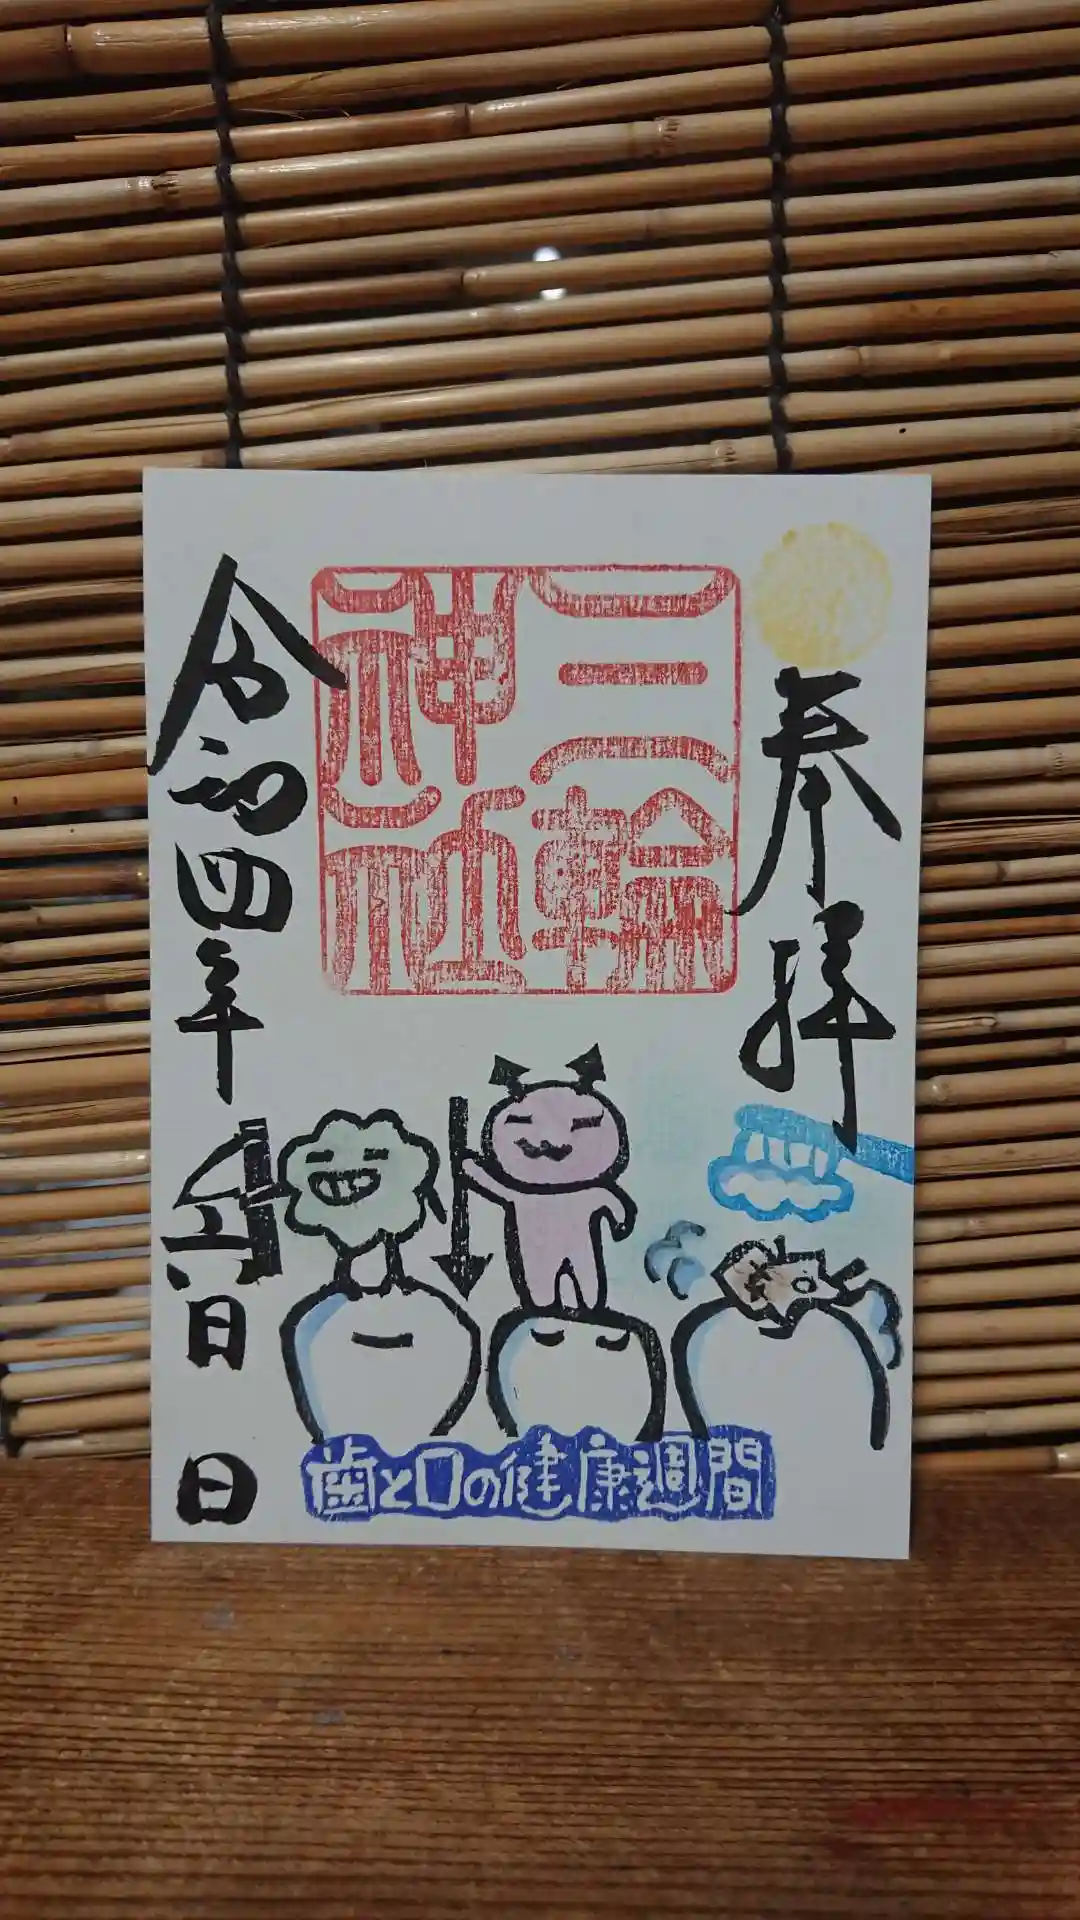 奉拝
三輪
神社
令和四年
六月
日
歯と口の健康週間